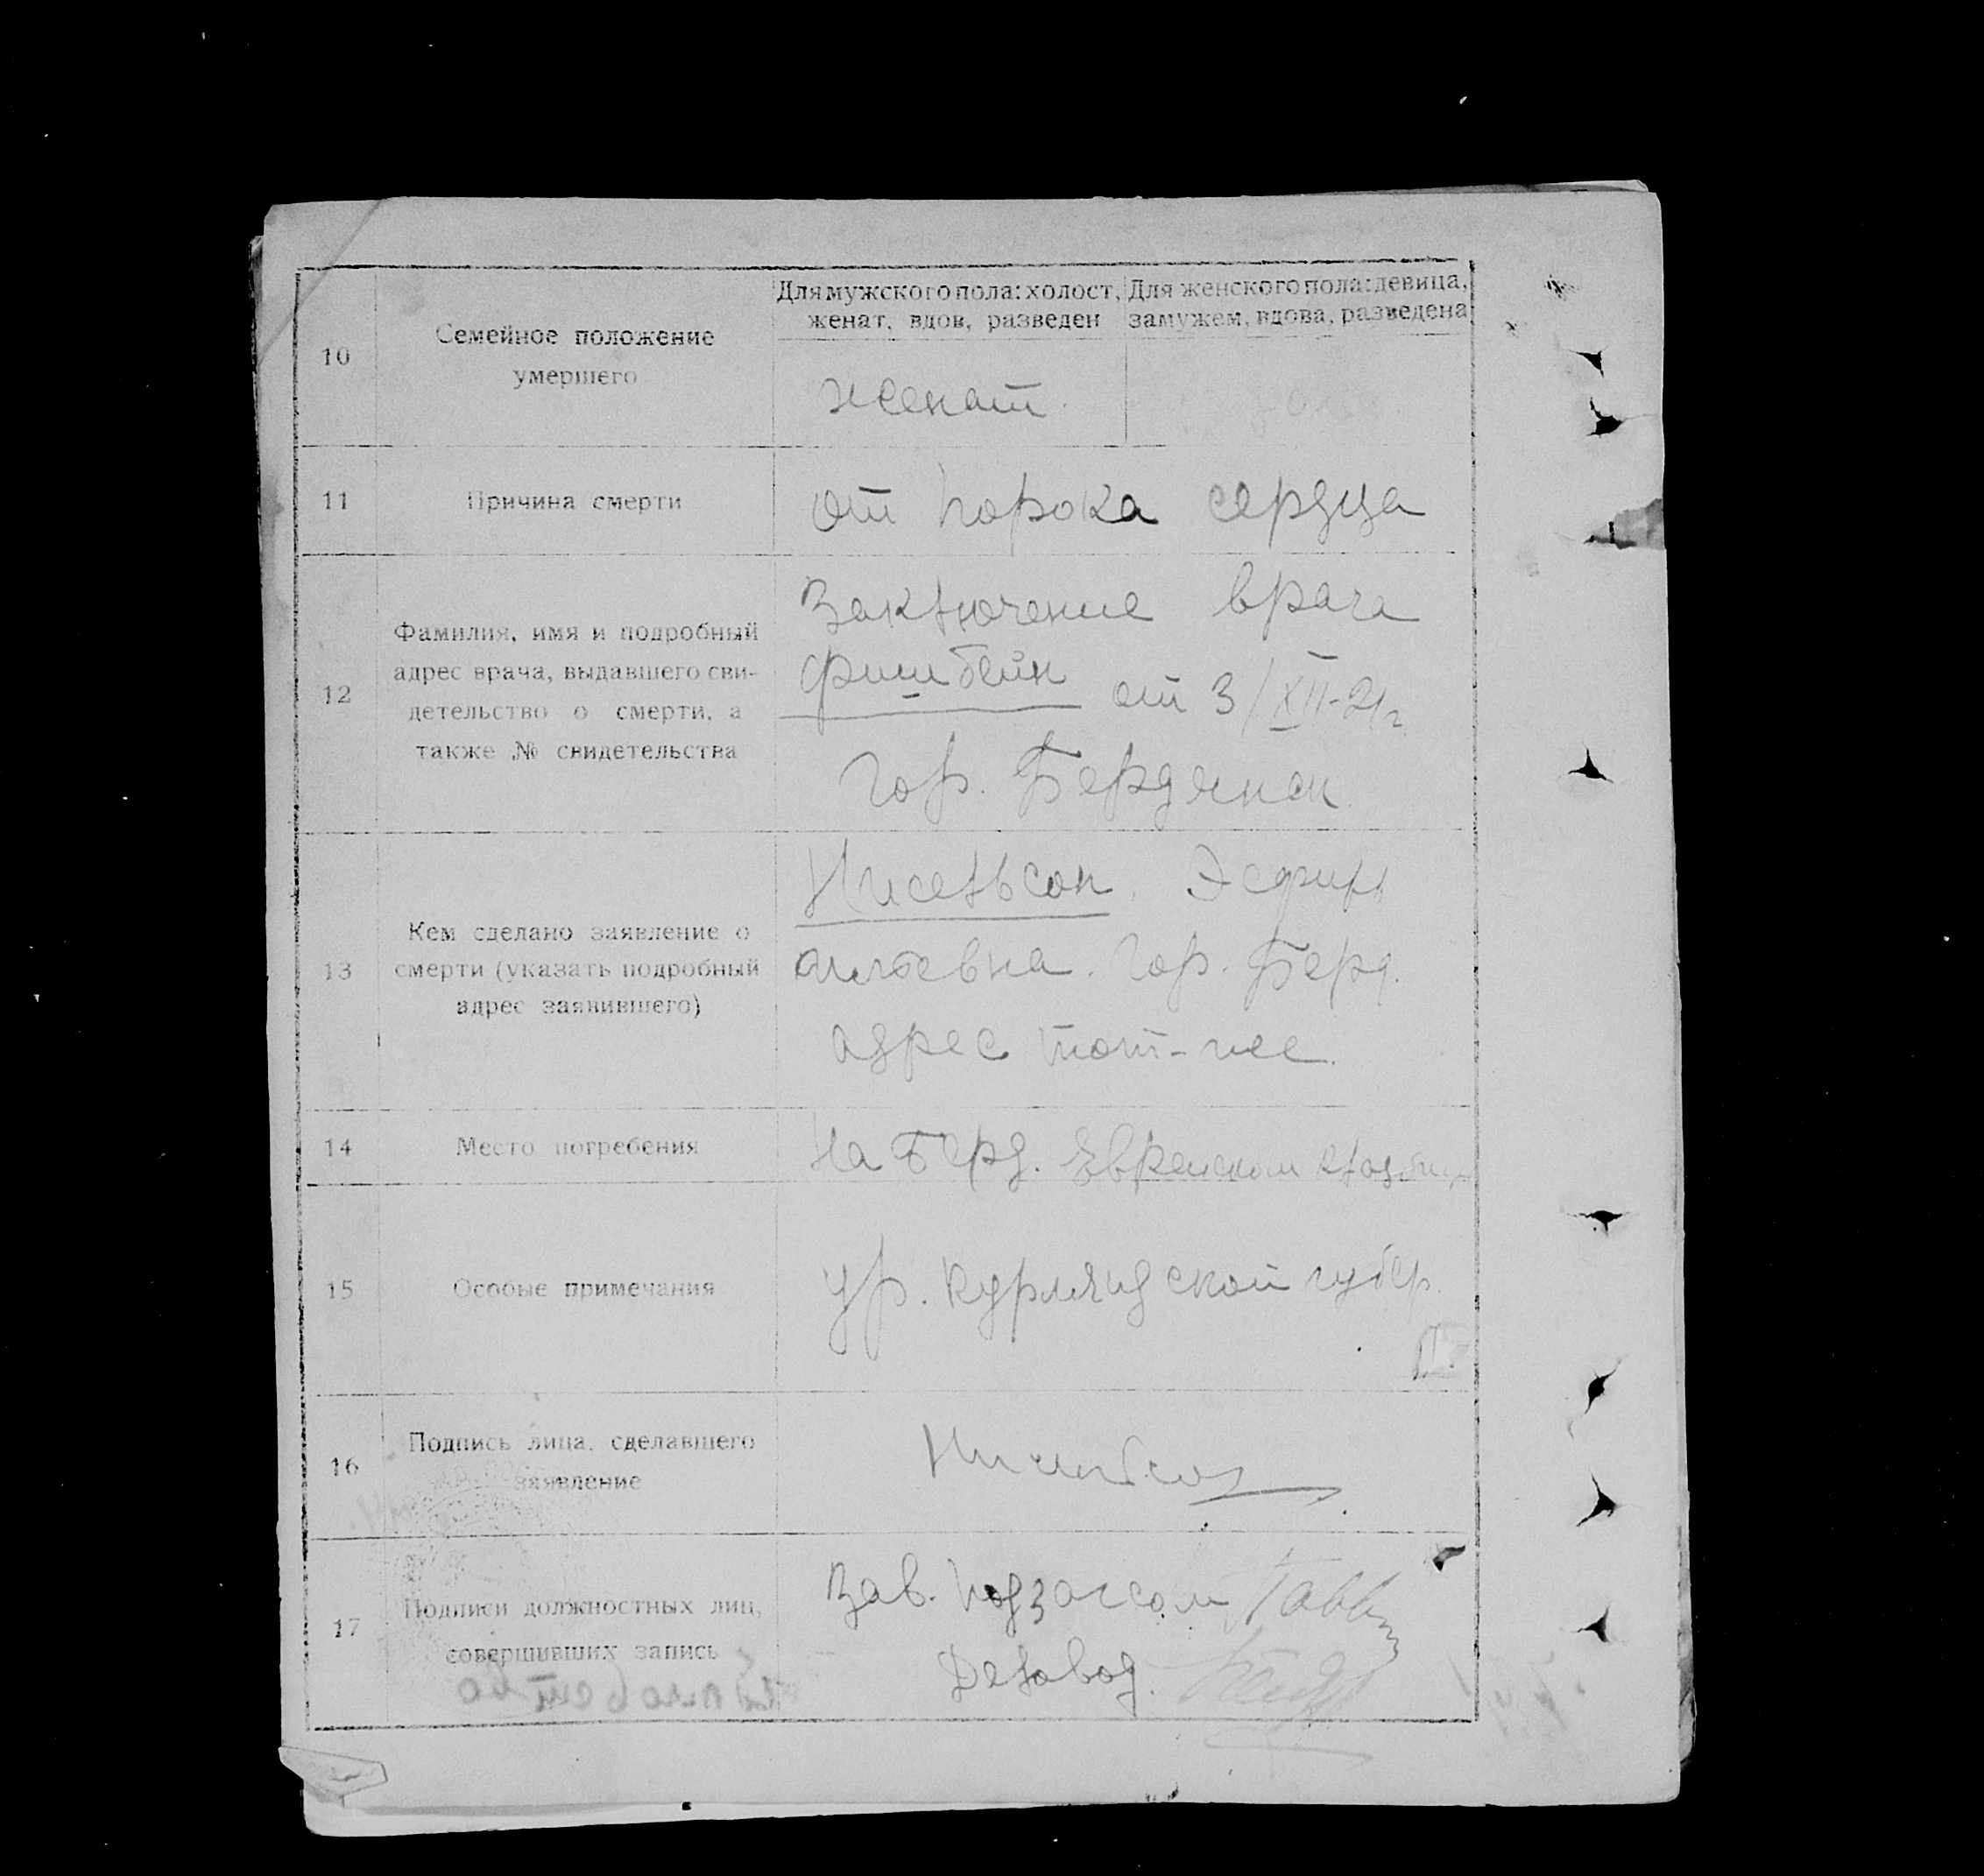 10
Семейное положение
умершего
Для мужского пола: холост,
женат, вдов, разведен
Для женского пола: девица,
замужем, вдова, разведена
женат.
11
Причина смерти
от порока сердца
12
Фамилия, имя и подробный
адрес врача, выдавшего сви-
детельство о смерти, а
также № свидетельства
Заключение врача
Фишбейн от 3/XII-21г
Гор. Бердянск.
13
Кем сделано заявление о
смерти (указать подробный
адрес заявившего)
Нисельсон.
Гор. Берд.
адрес тот-же.
14
Место погребения
На Берд. Еврейском кладбище
15
Особые примечания
ур. Курляндской губер.
16
Подпись лица, сделавшего
заявление
17
Подписи должностных лиц,
совершивших запись
Зав. подзагсом
Деловод.